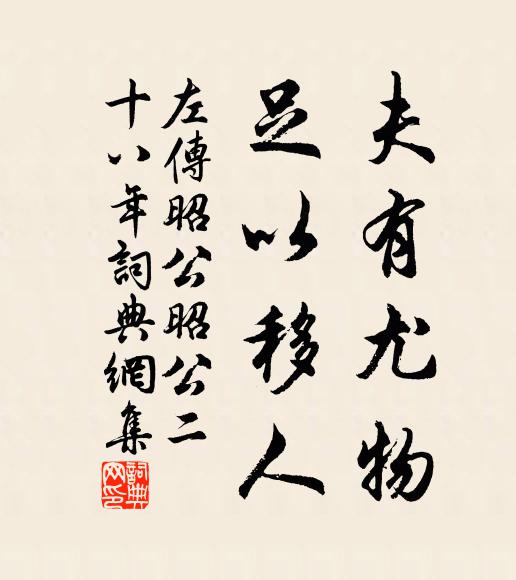 夫有尤物
足以移人
左傳昭公昭公二
十八年詞典網集
詞典
网印